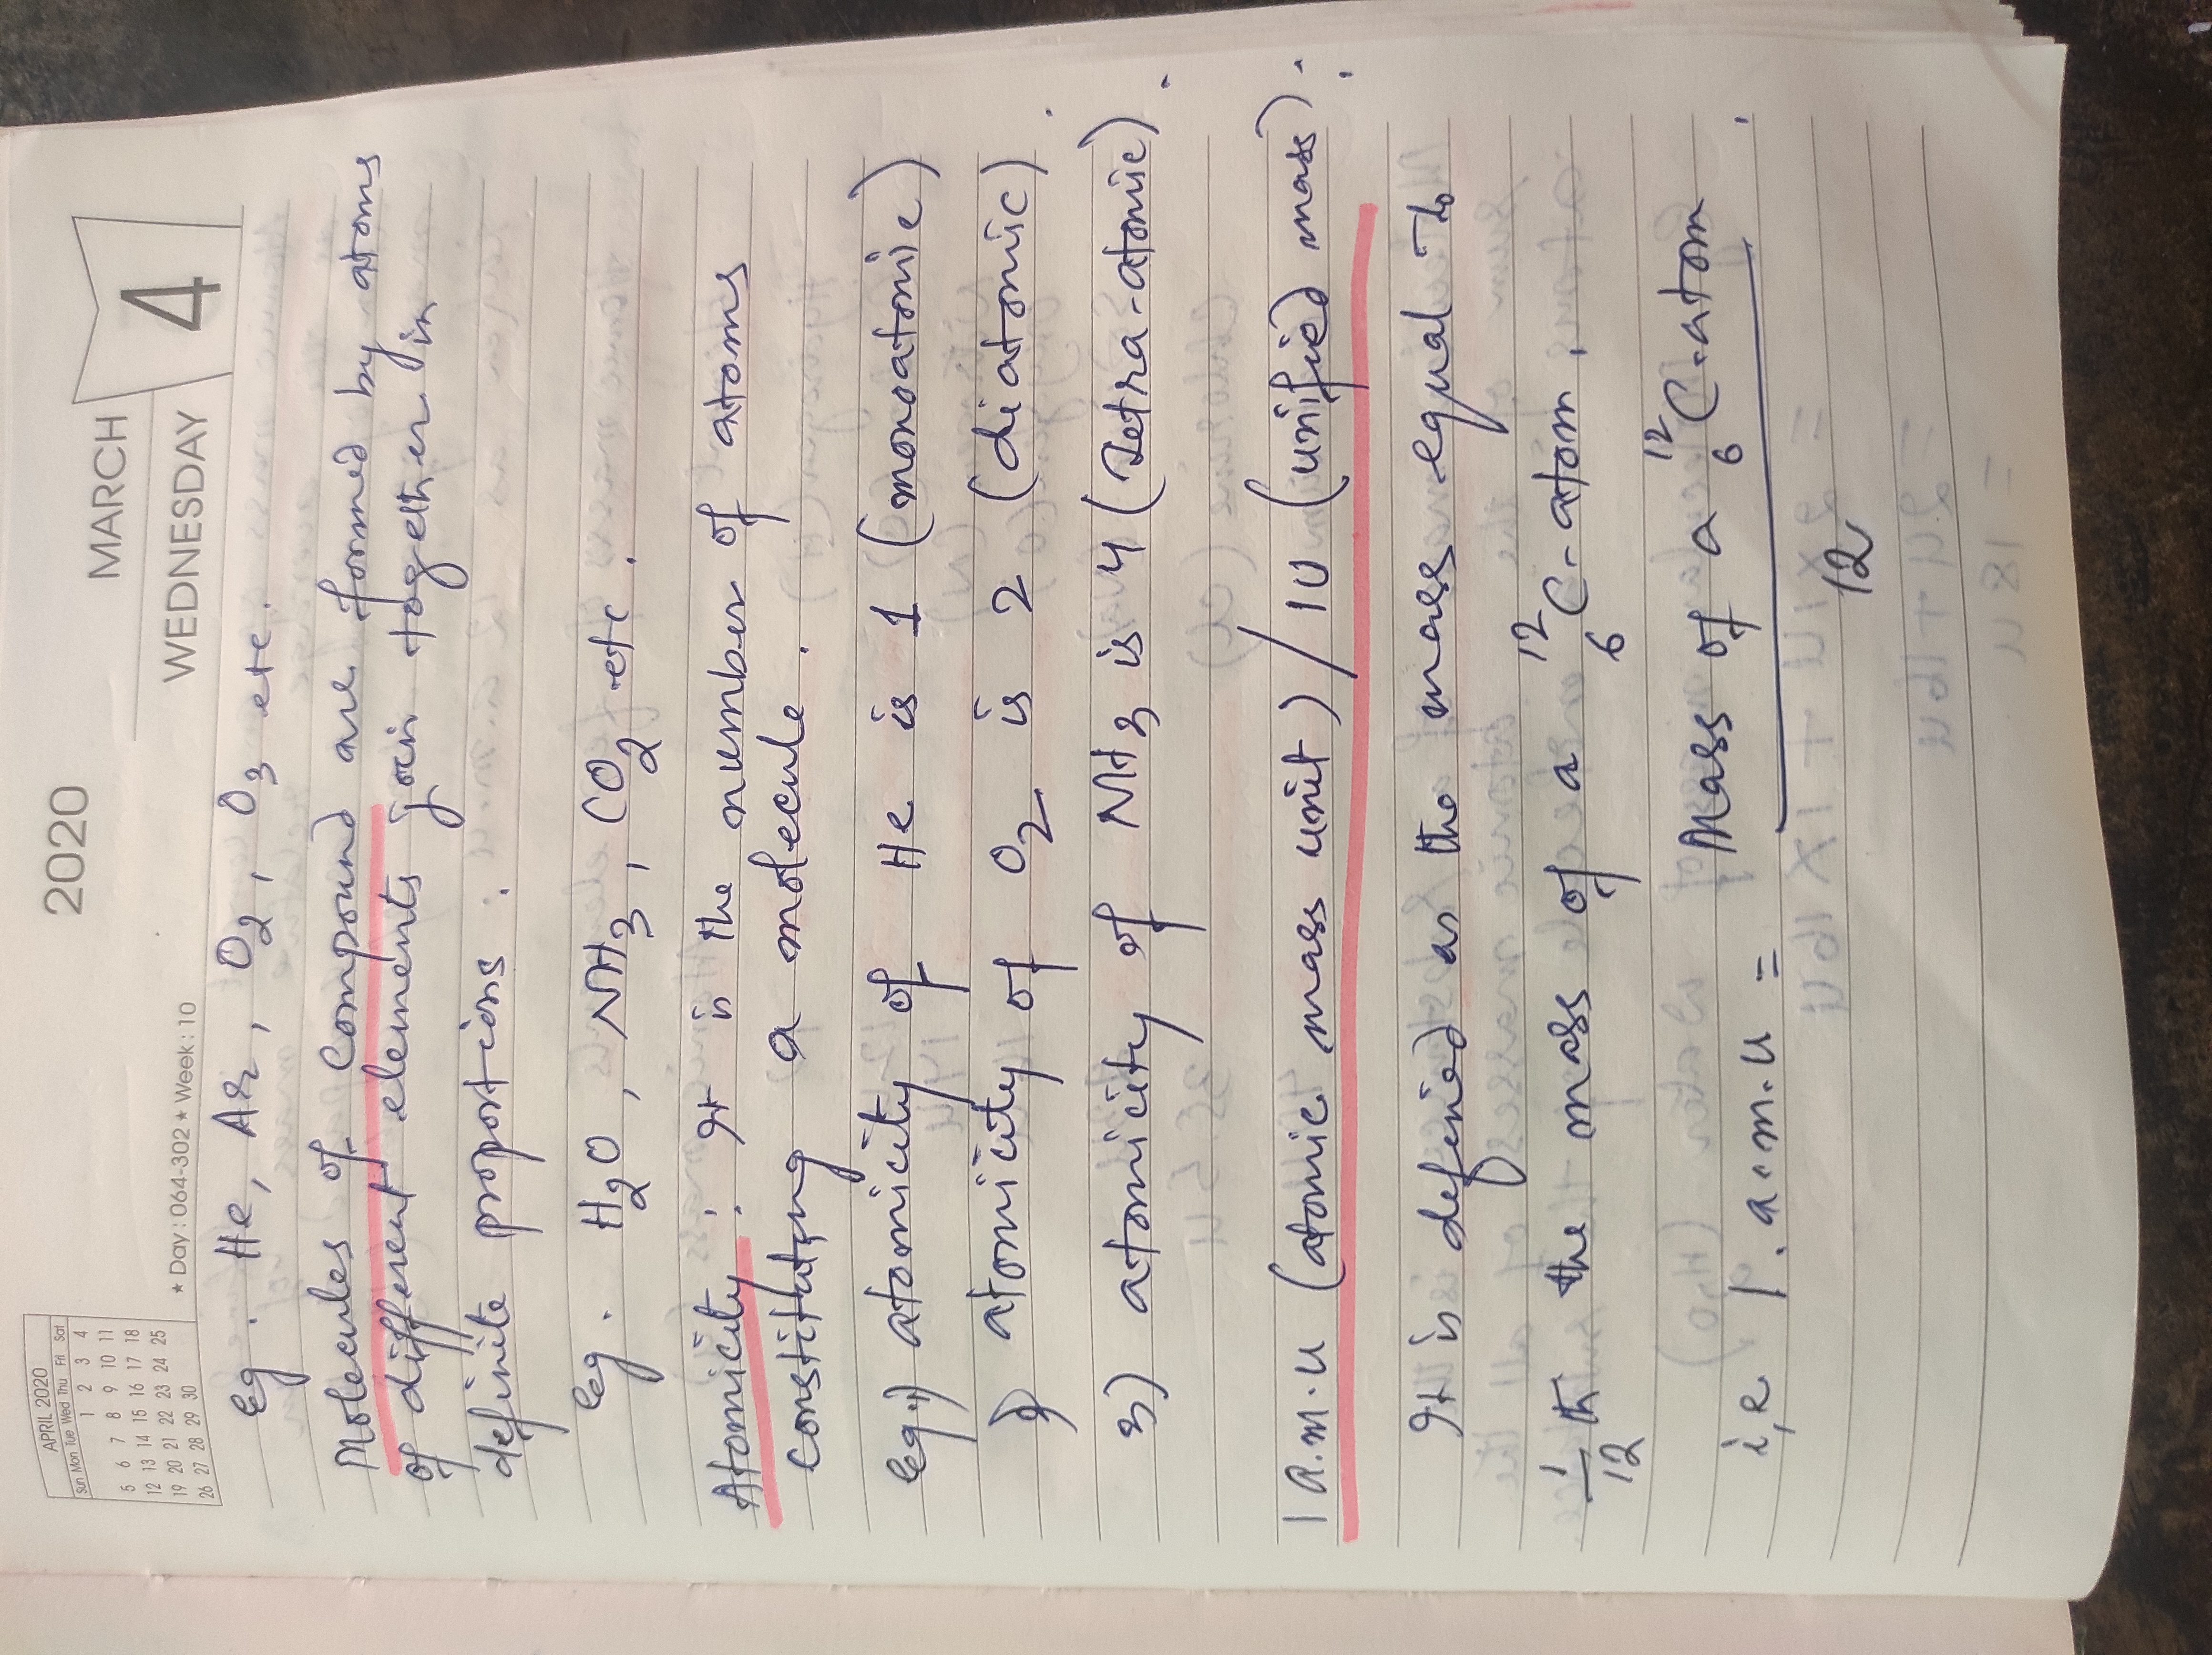 2020
MARCH
WEDNESDAY
4
APRIL 2020
Sun Mon Tue Wed Thu Fri Sat
1 2 3 4
5 6 7 8 9 10 11
12 13 14 15 16 17 18
19 20 21 22 23 24 25
26 27 28 29 30
★ Day : 064-302 ★ Week : 10
eg. He, Ar, O2, O3 etc.
Molecules of Compound are formed by atoms
of different elements join together in
definite proportions.
eg. H2O, NH3, CO2 etc.
Atomicity : It is the number of atoms
constituting a molecule.
eg 1) atomicity of He is 1 (monoatomic)
2) atomicity of O2 is 2 (diatomic).
3) atomicity of NH3 is 4 (Tetra-atomic).
1 a.m.u (atomic mass unit) / 1U (unified mass) :
It is defined as the mass equal to
1/12 th the mass of a 12 6 C-atom.
i,e 1. a.m.u = Mass of a 12 6 C-atom / 12.